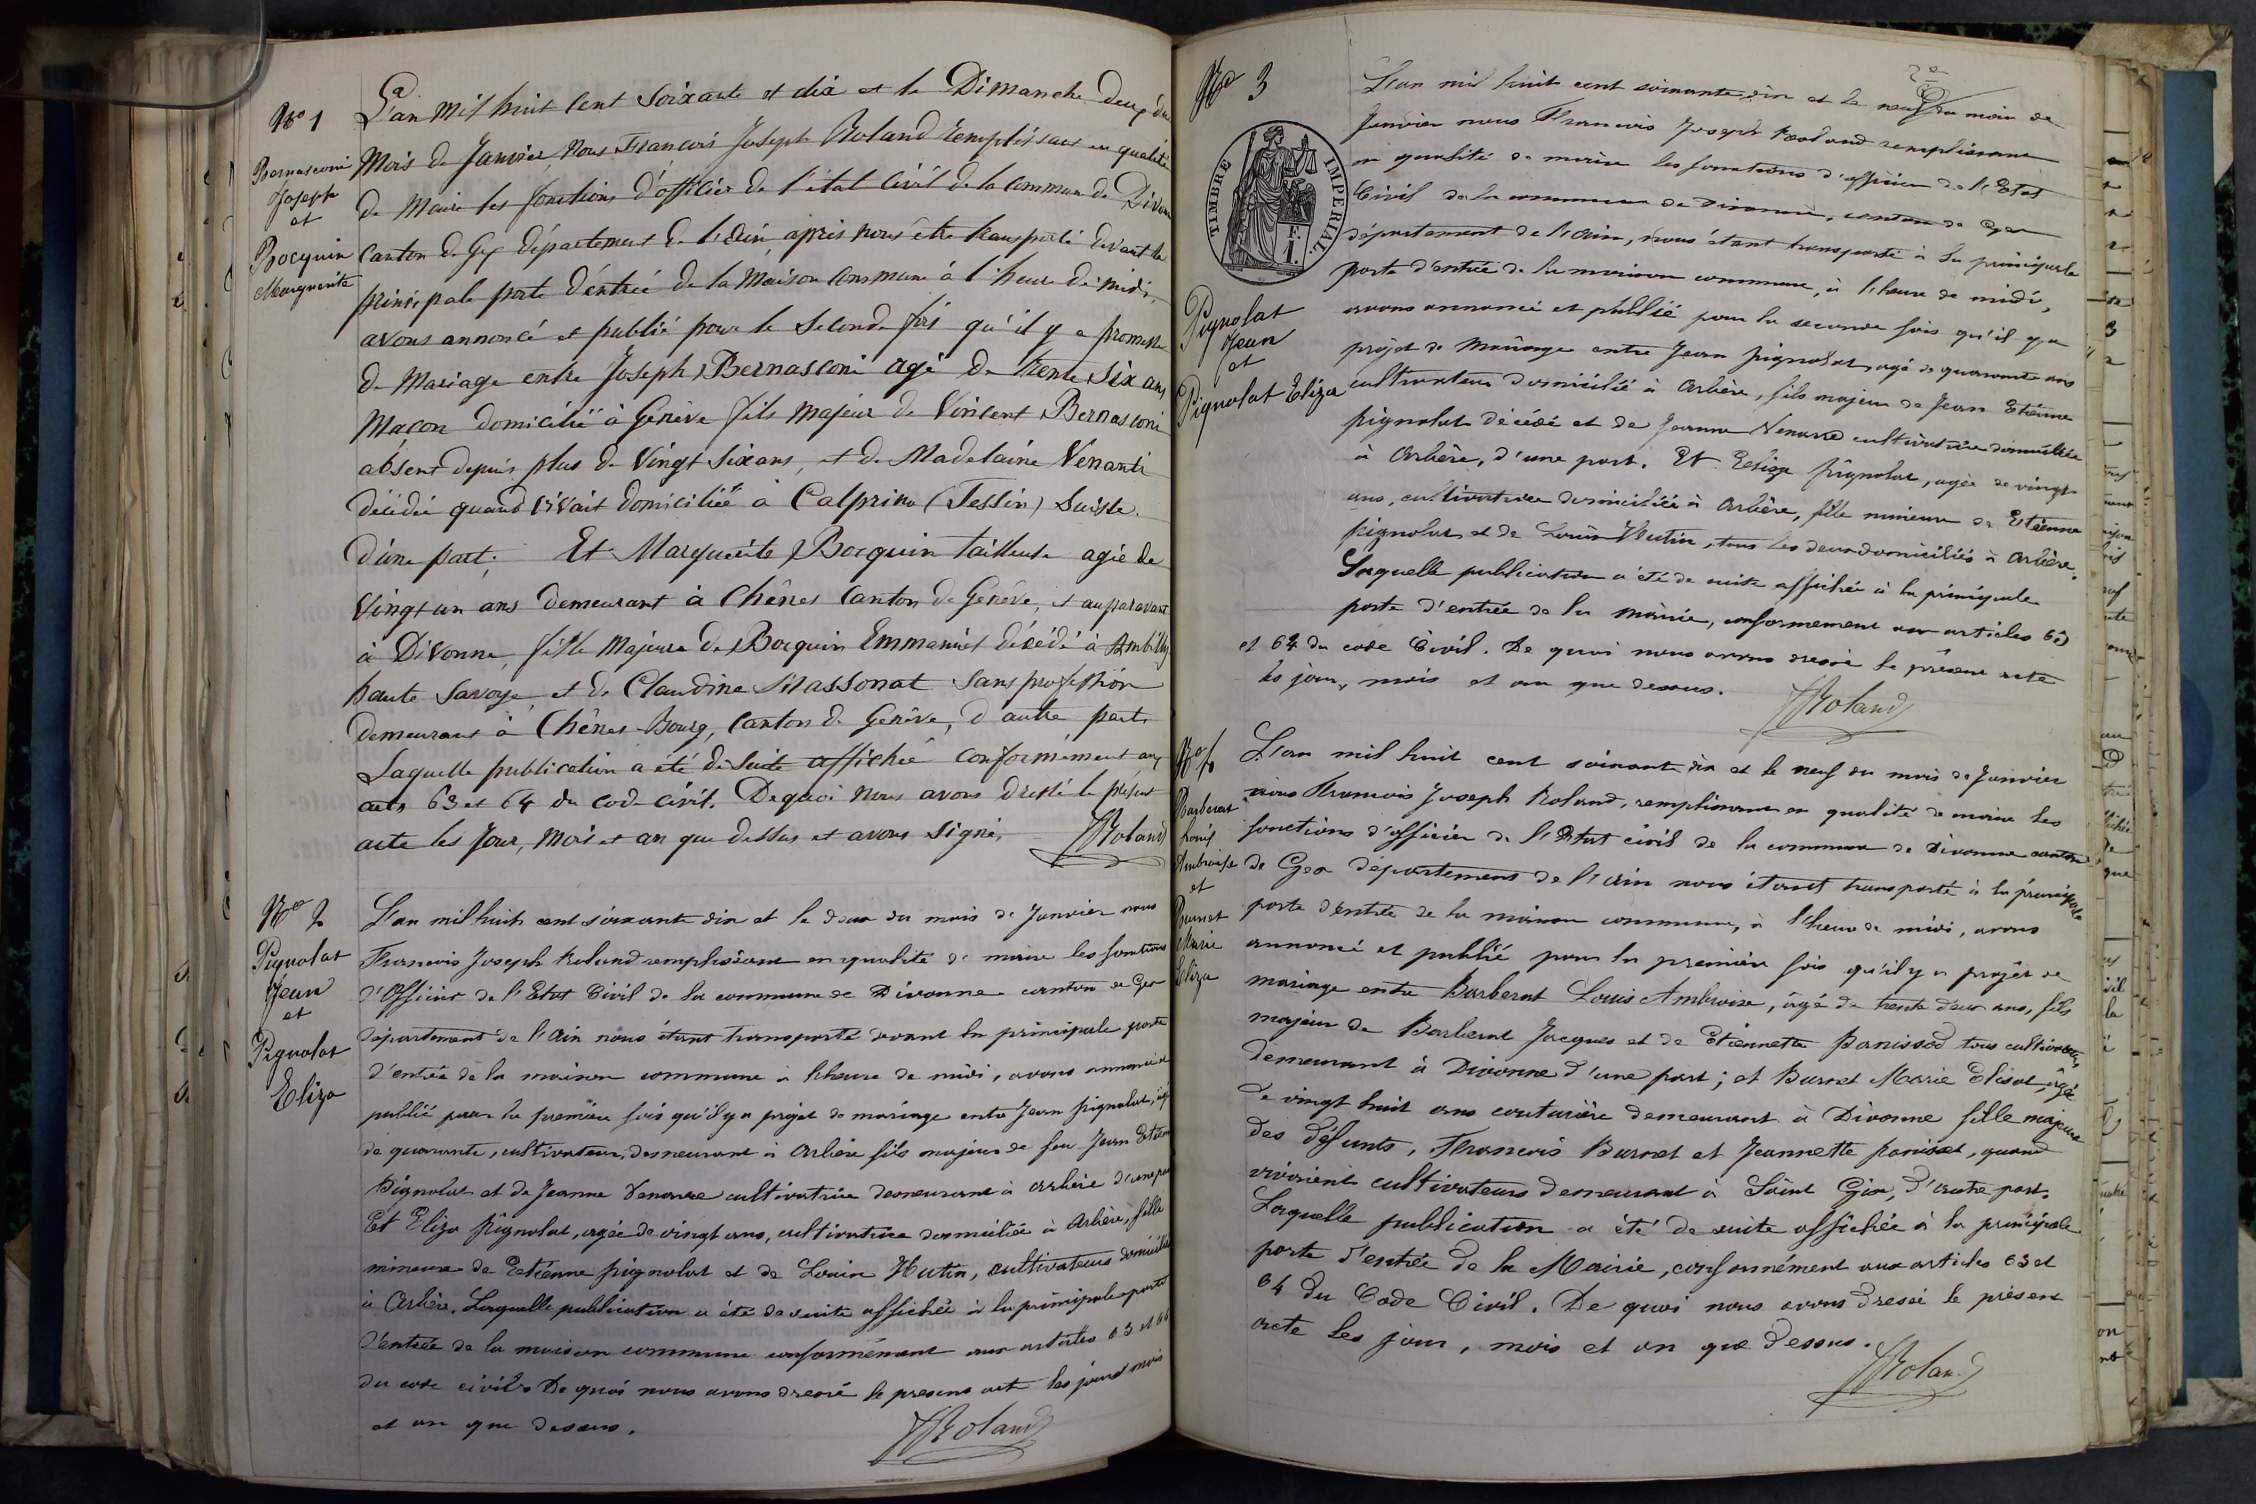 Nº 1
Bernasconi
Joseph
et
Bocquin
Marguerite
L'an Mil huit Cent Soixante et dix et le Dimanche deux du
Mois de Janvier, Nous Francois Joseph Roland remplissant en qualité
de Maire les fonctions d'officier de l'état Civil de la Commune de Divonne
Canton de Gex département de l'Ain après nous être transporté devant la
principale porte d'entrée de la Maison Commune à l'heure de midi,
avons annoncé et publié pour la Seconde fois qu'il y a promesse
de Mariage entre Joseph Bernasconi agé de trente six ans
Maçon domicilié à Genève fils majeur de Vincent Bernasconi
absent depuis plus de Vingt Six ans, et de Madelaine Venanti
décédée quand vivait domiciliée à Calprino (Tessin) Suisse.
d'une part; Et Marguerite Bocquin tailleuse agée de
Vingt un ans demeurant à Chênes Canton de Genève, et auparavant
à Divonne, fille Majeure de Bocquin Emmanuel décédé à Ambilly
haute Savoye, et de Claudine Massonat Sans profession
demeurant à Chênes-Bourg, Canton de Genève, d'autre part.
Laquelle publication a été de Suite affichée conformément aux
arts 63 et 64 du code civil. De quoi nous avons dressé le présent
acte les Jour, Mois et an que dessus et avons signé,
JRoland
Nº 2
Pignolat
Jean
et
Pignolat
Eliza
L'an mil huit cent soixante dix et le deux du mois de Janvier nous
Francois Joseph Roland remplissant en qualité de maire les fonctions
d'Officier de l'Etat Civil de la commune de Divonne canton de Gex
département de l'Ain nous étant transporté devant la principale porte
d'entrée de la maison commune à l'heure de midi, avons annoncé et
publié pour la première fois qu'il y a projet de mariage entre Jean Pignolat, agé
de quarante, cultivateur, demeurant à Arbère fils majeur de feu Jean Etienne
Pignolat et de Jeanne Venarre cultivatrice demeurant à Arbère d'une part
Et Eliza Pignolat, agée de vingt ans, cultivatrice domiciliée à Arbère, fille
mineure de Etiénne Pignolat et de Louise Hutin, cultivateurs domiciliés
à Arbère. Laquelle publication a été de suite affichée à la principale porte
d'entrée de la maison commune conformément aux articles 63 et 64
du code civil. De quoi nous avons dressé le présent acte les jour et mois
et an que dessus.
JRoland
Nº 3
TIMBRE IMPERIAL.
F.
1.
Pignolat
Jean
et
Pignolat Eliza
L'an mil huit cent soixante dix et le neuf du mois de
Janvier nous Francois Joseph Roland remplissant
en qualité de maire les fonctions d'officier de l'Etat
Civil de la commune de Divonne, canton de Gex
département de l'Ain, nous étant transporté à la principale
porte d'entrée de la maison commune, à l'heure de midi,
avons annoncé et publié pour la seconde fois qu'il y a
projet de mariage entre Jean Pignolat, agé de quarante ans
cultivateur domicilié à Arbère, fils majeur de Jean Etiénne
Pignolat décédé et de Jeanne Venarre cultivatrice domiciliée
à Arbère, d'une part. Et Eliza Pignolat, agée de vingt
ans, cultivatrice domiciliée à Arbère, fille mineure de Etiénne
Pignolat et de Louise Hutin, tous les deux domiciliés à Arbère.
Laquelle publication a été de suite affichée à la principale
porte d'entrée de la mairie, conformément aux articles 63
et 64 du code Civil. De quoi nous avons dressé le présent acte
les jour, mois et an que dessus.
JRoland
Nº 4
Barberat
Louis
Ambroise
et
Burnet
Marie
Eliza
L'an mil huit cent soixante dix et le neuf du mois de Janvier
nous Francois Joseph Roland, remplissant en qualité de maire les
fonctions d'officier de l'Etat civil de la commune de Divonne canton
de Gex département de l'Ain nous étant transporté à la principale
porte d'entrée de la maison commune, à l'heure de midi, avons
annoncé et publié pour la première fois qu'il y a projet de
mariage entre Barberat Louis Ambroise, âgé de trente deux ans, fils
majeur de Barberat Jacques et de Etiennette Panissod tous cultivateurs
demeurant à Divonne d'une part; et Burnet Marie Elisa, âgée
de vingt huit ans couturière demeurant à Divonne fille majeure
des défunts, Francois Burnet et Jeannette Panisset, quand
vivaient cultivateurs demeurant à Saint Gix, d'autre part.
Laquelle publication a été de suite affichée à la principale
porte d'entrée de la Mairie, conformément aux articles 63 et
64 du Code Civil. De quoi nous avons dressé le présent
acte les jour, mois et an que dessus.
JRoland